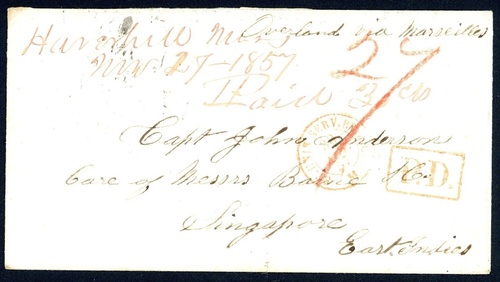 Overland via Marseilles
Haverhill Mass
Nov. 27-1857
27
Paid 3 cts
Capt John Anderson
Care of Messrs Baine &Co.
P.D.
Singapore
East Indies